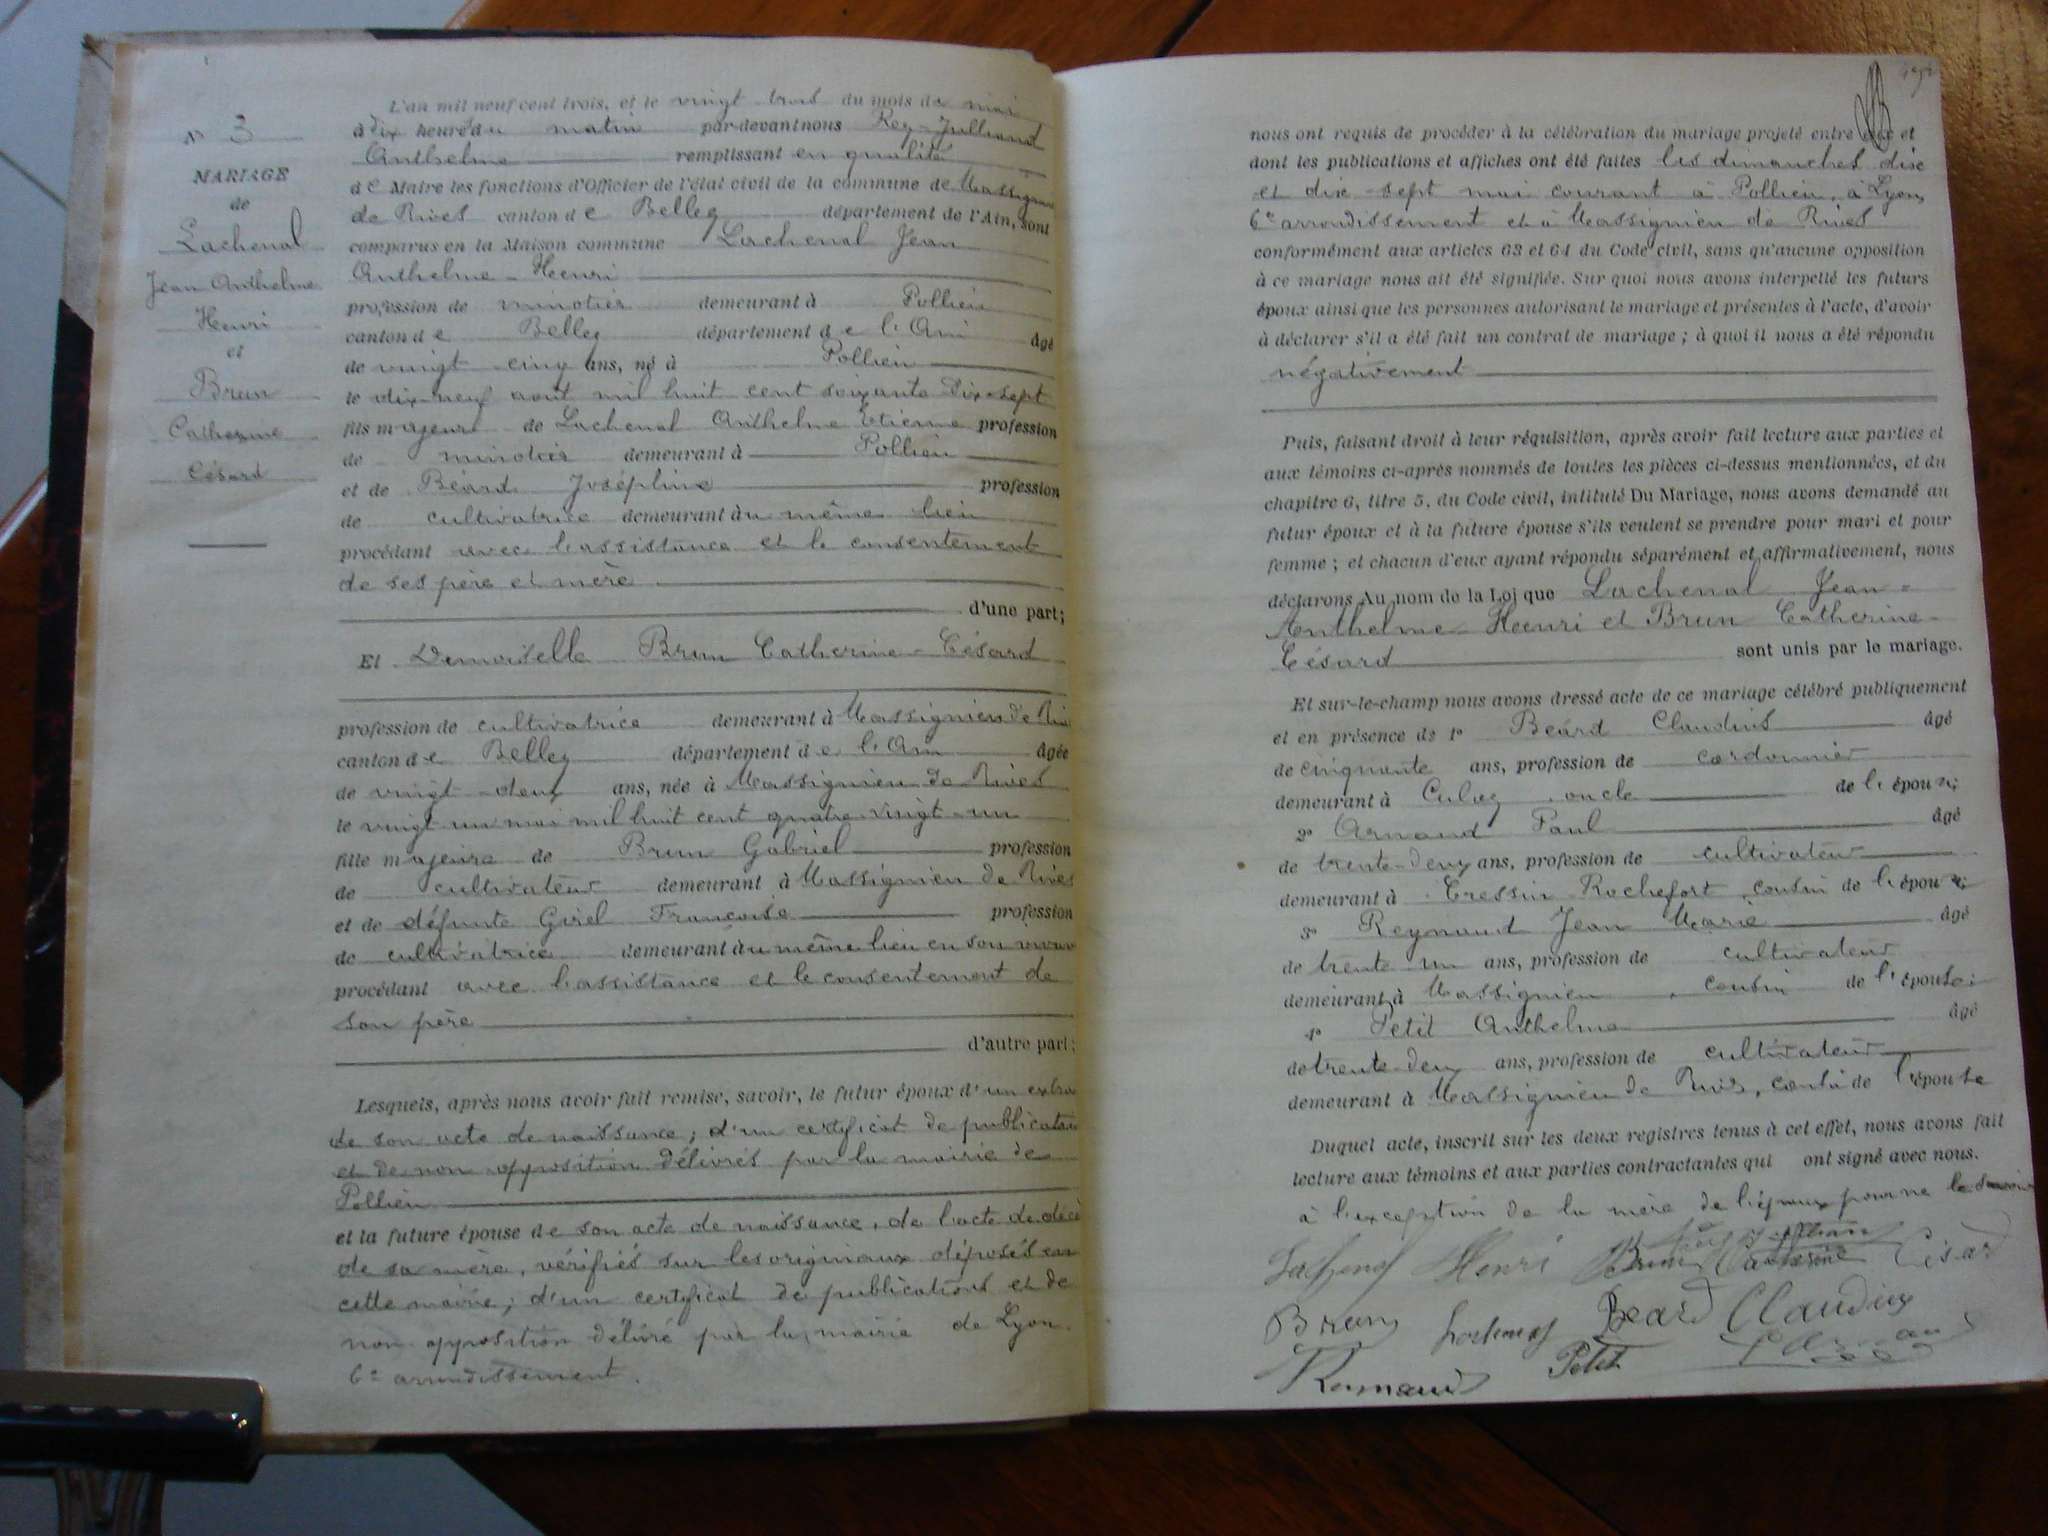 N° 3
MARIAGE
de
Lachenal
Jean Anthelme
Henri
et
Brun
Catherine
Césard
L'an mil neuf cent trois, et le vingt trois du mois de mai
à dix heures du matin par-devant nous Rey-Julliand
Anthelme remplissant en qualité
de Maire les fonctions d'Officier de l'état civil de la commune de Massignieu
de Rives canton de Belley département de l'Ain, sont
comparus en la Maison commune Lachenal Jean
Anthelme - Henri
profession de minotier demeurant à Pollieu
canton de Belley département de l'Ain âgé
de vingt cinq ans, né à Pollieu
le dix-neuf août mil huit cent soixante Dix-sept
fils majeur de Lachenal Anthelme Etienne profession
de minotier demeurant à Pollieu
et de Béard Joséphine profession
de cultivatrice demeurant au même lieu
procédant avec l'assistance et le consentement
de ses père et mère
d'une part;
Et Demoiselle Brun Catherine - Césard
profession de cultivatrice demeurant à Massignieu de Rives
canton de Belley département de l'Ain âgée
de vingt-deux ans, née à Massignieu de Rives
le vingt un mai mil huit cent quatre-vingt-un
fille majeure de Brun Gabriel profession
de cultivateur demeurant à Massignieu de Rives
et de défunte Girel Françoise profession
de cultivatrice demeurant au même lieu en son vivant
procédant avec l'assistance et le consentement de
son père
d'autre part;
Lesquels, après nous avoir fait remise, savoir, le futur époux d'un extrait
de son acte de naissance; d'un certificat de publication
et de non opposition délivrés par la mairie de
Pollieu
et la future épouse de son acte de naissance, de l'acte de décès
de sa mère, vérifiés sur les originaux déposés en
cette mairie; d'un certificat de publications et de
non opposition délivré par la mairie de Lyon.
6e arrondissement.
nous ont requis de procéder à la célébration du mariage projeté entre eux et
dont les publications et affiches ont été faites les dimanches dix
et dix-sept mai courant à Pollieu, à Lyon,
6e arrondissement et à Massignieu de Rives
conformément aux articles 63 et 64 du Code civil, sans qu'aucune opposition
à ce mariage nous ait été signifiée. Sur quoi nous avons interpellé les futurs
époux ainsi que les personnes autorisant le mariage et présentes à l'acte, d'avoir
à déclarer s'il a été fait un contrat de mariage; à quoi il nous a été répondu
négativement
Puis, faisant droit à leur réquisition, après avoir fait lecture aux parties et
aux témoins ci-après nommés de toutes les pièces ci-dessus mentionnées, et du
chapitre 6, titre 5, du Code civil, intitulé Du Mariage, nous avons demandé au
futur époux et à la future épouse s'ils veulent se prendre pour mari et pour
femme; et chacun d'eux ayant répondu séparément et affirmativement, nous
déclarons Au nom de la Loi que Lachenal Jean-
Anthelme-Henri et Brun Catherine-
Césard sont unis par le mariage.
Et sur-le-champ nous avons dressé acte de ce mariage célébré publiquement
et en présence de 1° Béard Claudius âgé
de cinquante ans, profession de cordonnier
demeurant à Culoz, oncle de l'époux;
2° Arnaud Paul âgé
de trente-deux ans, profession de cultivateur
demeurant à Cressin-Rochefort, cousin de l'époux;
3° Reynaud Jean Marie âgé
de trente un ans, profession de cultivateur
demeurant à Massignieu, cousin de l'épouse;
4° Petit Anthelme âgé
de trente-deux ans, profession de cultivateur
demeurant à Massignieu de Rives, cousin de l'épouse
Duquel acte, inscrit sur les deux registres tenus à cet effet, nous avons fait
lecture aux témoins et aux parties contractantes qui ont signé avec nous.
à l'exception de la mère de l'époux pour ne le savoir
Lachenal Henri Brun Catherine Césard
Brun Lachenal Beard Claudius
Reynaud Petit